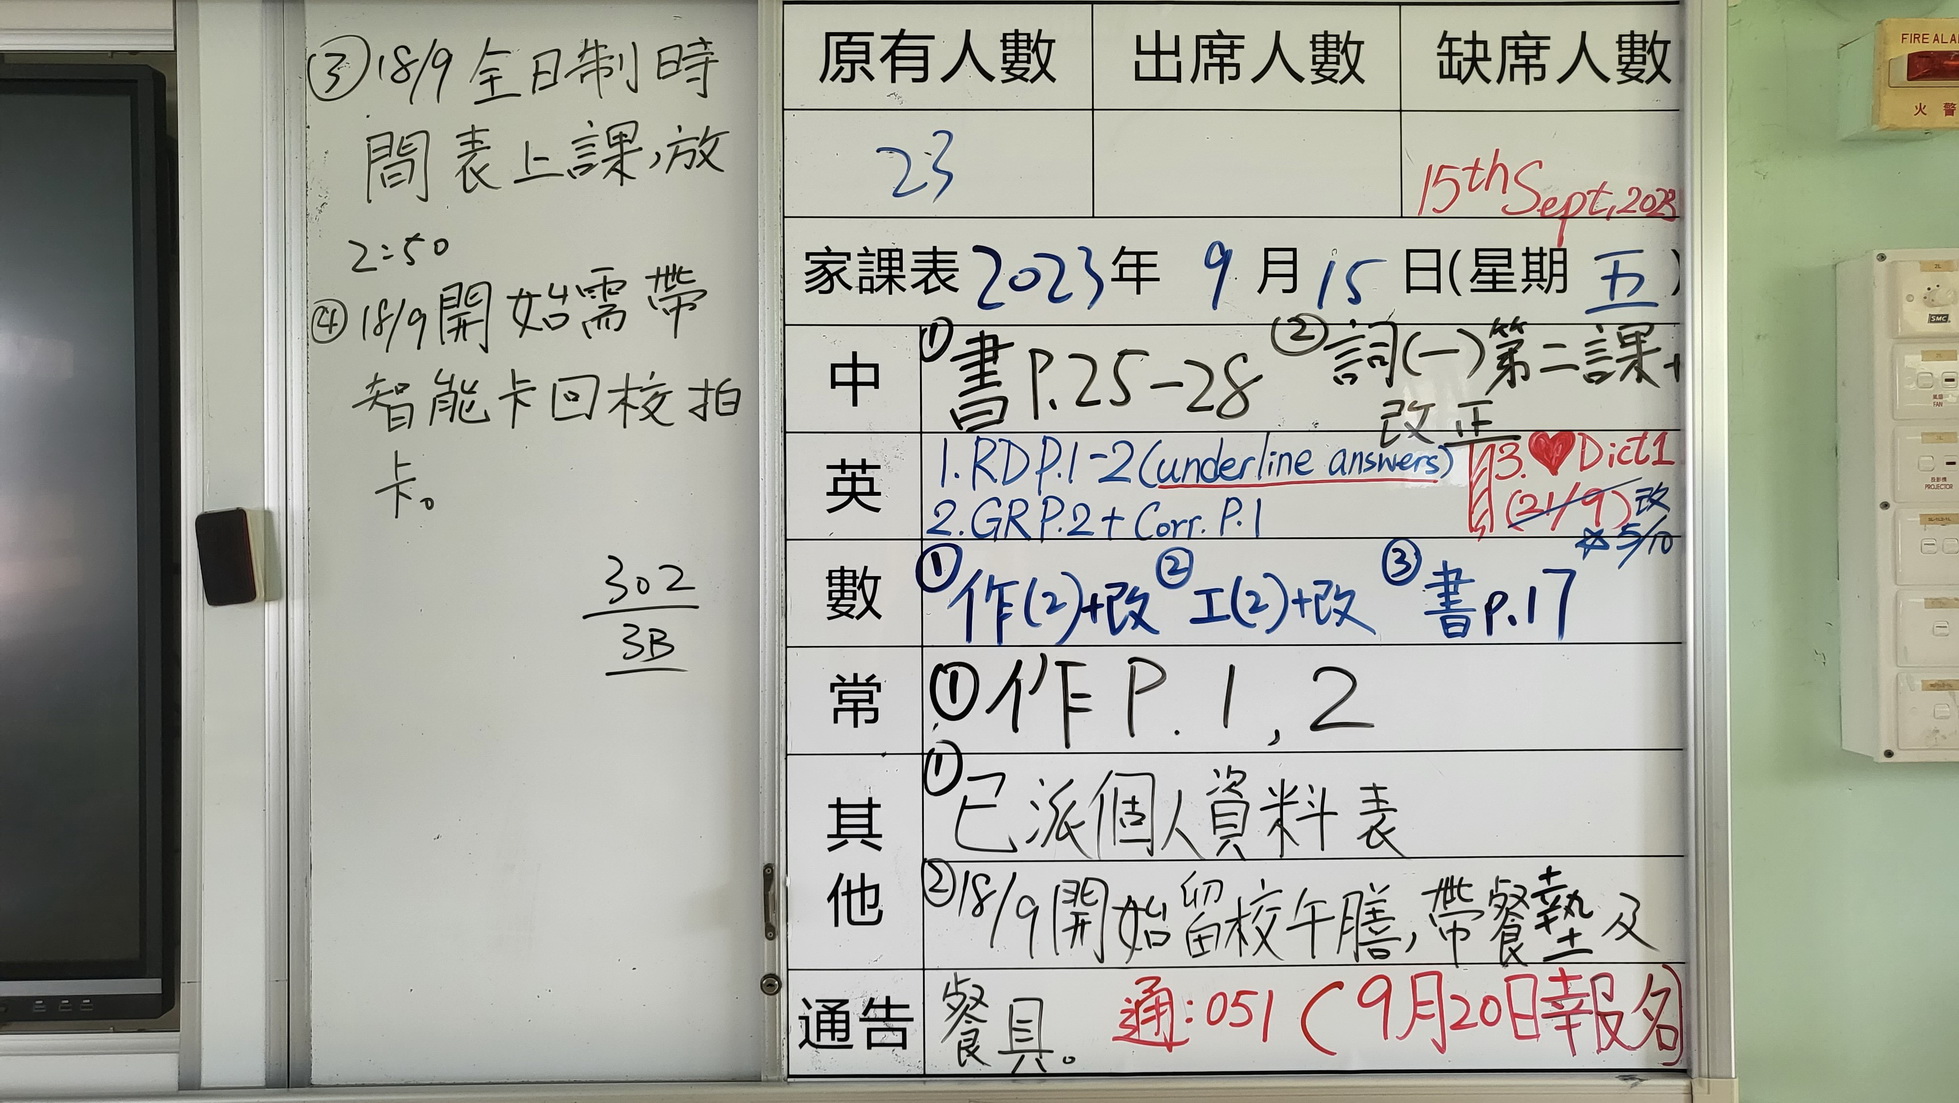 ③18/9全日制時
間表上課,放
2:50
④18/9開始需帶
智能卡回校拍
卡。
302
3B
原有人數 出席人數 缺席人數
23
15th Sept, 2023
家課表2023年 9月15日(星期五)
中 ①書P.25-28 ②詞(一)第二課+
改正
英 1.RD P.1-2(underline answers) 3.♥Dict1
2.GR P.2+Corr. P.1 (21/9)改
☆5/10
數 ①作(2)+改 ②工(2)+改 ③書p.17
常 ①作P.1,2
其他 ①已派個人資料表
②18/9開始留校午膳,帶餐墊及
通告 餐具。 通:051(9月20日報名)
FIRE ALA
火 警
SMC
FAN
PROJECTOR